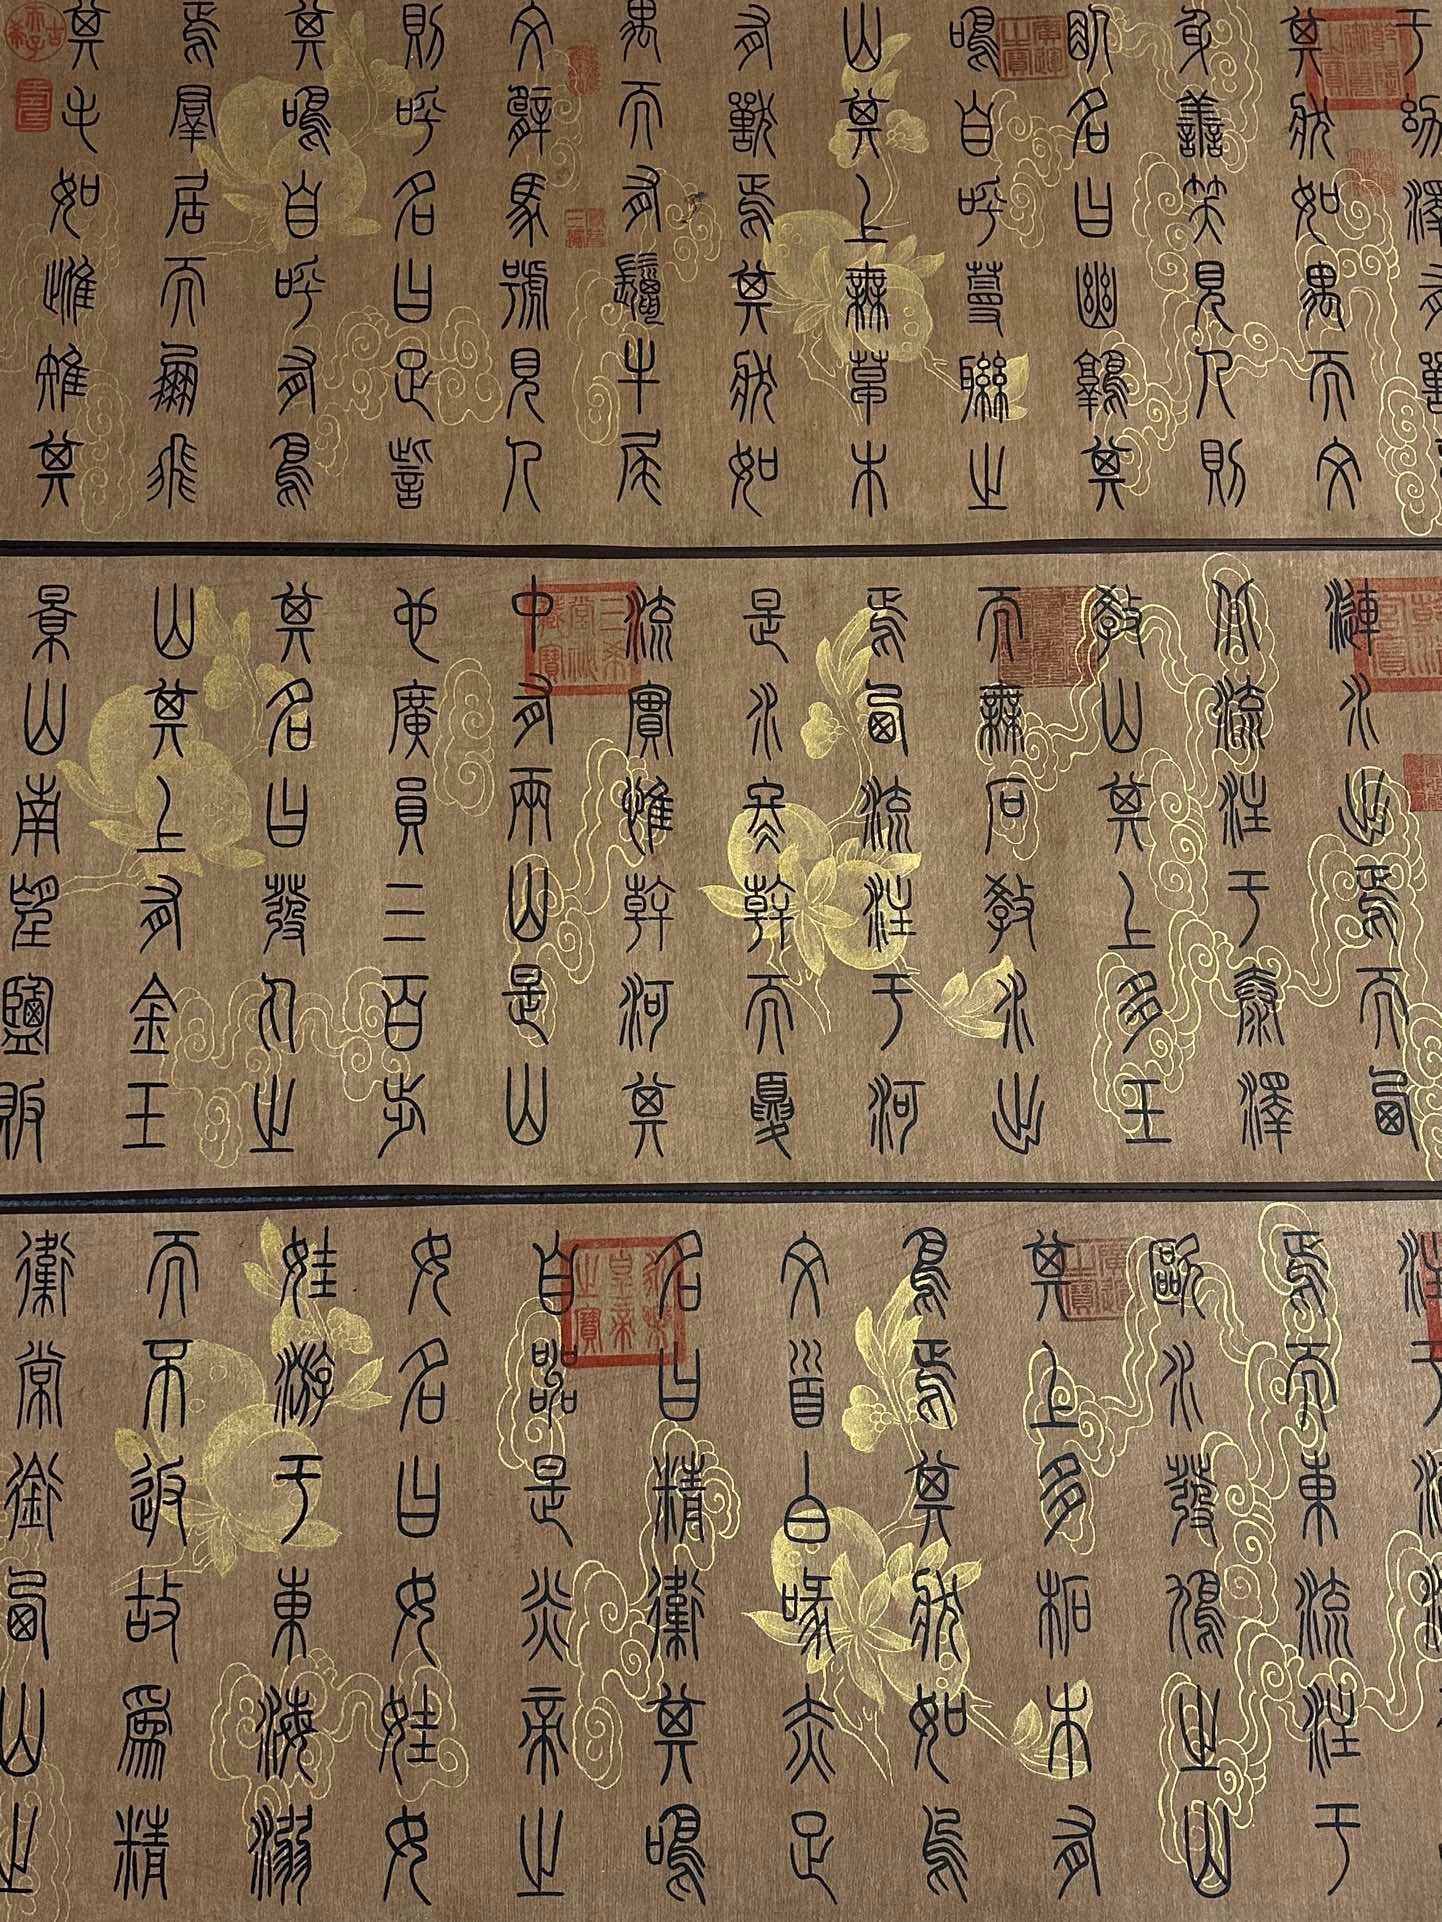 于泑澤有獸
其狀如禺而文
身善笑見人則
臥名曰幽鴳其
鳴自呼蔓聯之
山其上無草木
有獸焉其狀如
禺而有鬣牛尾
文臂馬蹏見人
則呼名曰足訾
其鳴自呼有鳥
焉羣居而朋飛
其毛如雌雉其
㶌水出焉而西
北流注于泰澤
教山其上多玉
而無石教水出
焉西流注于河
是水冬乾而夏
流實惟乾河其
中有兩山是山
也廣員三百步
其名曰發丸之
山其上有金玉
景山南望鹽販
注于
焉而東流注于
歐水發鳩之山
其上多柘木有
鳥焉其狀如烏
文首白喙赤足
名曰精衛其鳴
自詨是炎帝之
女名曰女娃女
娃游于東海溺
而不返故為精
衛常銜西山之